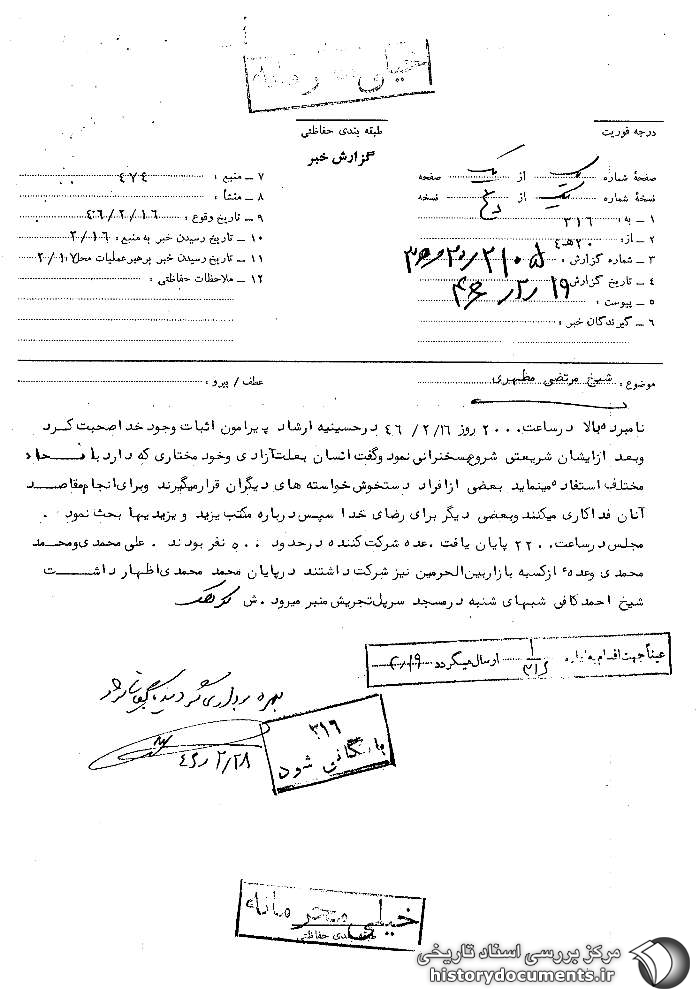 خیلی محرمانه
درجه فوریت
طبقه بندی حفاظتی
گزارش خبر
صفحهٔ شماره یک از یک صفحه
نسخهٔ شماره یک از نسخه
۱ ـ به : ۳۱۶
۲ ـ از : ۲۰ هـ ٤
۳ ـ شماره گزارش :
٤ ـ تاریخ گزارش ۱۹ر۲ر۴۶
۵ ـ پیوست :
۶ ـ گیرندگان خبر :
۷ ـ منبع : ٤٧٤
۸ ـ منشأ :
۹ ـ تاریخ وقوع : ٤٦/۲/۱٦
۱۰ ـ تاریخ رسیدن خبر به منبع : ۲/۱٦
۱۱ ـ تاریخ رسیدن خبر برهبر عملیات محل : ۲/۱۷
۱۲ ـ ملاحظات حفاظتی :
موضوع : شیخ مرتضی مطهری
عطف / پیرو :
نامبرده بالا در ساعت ۲۰۰۰ روز ٤٦/۲/۱٦ در حسینیه ارشاد پیرامون اثبات وجود خدا صحبت کرد
وبعد ازایشان شریعتی شروع بسخنرانی نمود وگفت انسان بعلت آزادی وخود مختاری که دارد با انحاء
مختلف استفاده مینماید بعضی ازافراد دستخوش خواسته های دیگران قرار میگیرند وبرای انجام مقاصد
آنان فداکاری میکنند وبعضی دیگر برای رضای خدا سپس درباره مکتب یزید و یزیدیها بحث نمود .
مجلس در ساعت ۲۲۰۰ پایان یافت . عده شرکت کننده در حدود ۵۰۰ نفر بودند . علی محمدی ومحمد
محمدی وعدهٔ ازکسبه بازار بین الحرمین نیز شرکت داشتند در پایان محمد محمدی اظهار داشت
شیخ احمد کافی شبهای شنبه در مسجد سرپل تجریش منبر میرود . ش
عیناً جهت اقدام به اداره ۳۱۶ ارسال میگردد ۲/۱۹
بهره برداری گردید
۲/۲۸ر۴۶
۳۱۶
بایگانی شود
خیلی محرمانه
طبقه بندی حفاظتی
مرکز بررسی اسناد تاریخی
historydocuments.ir